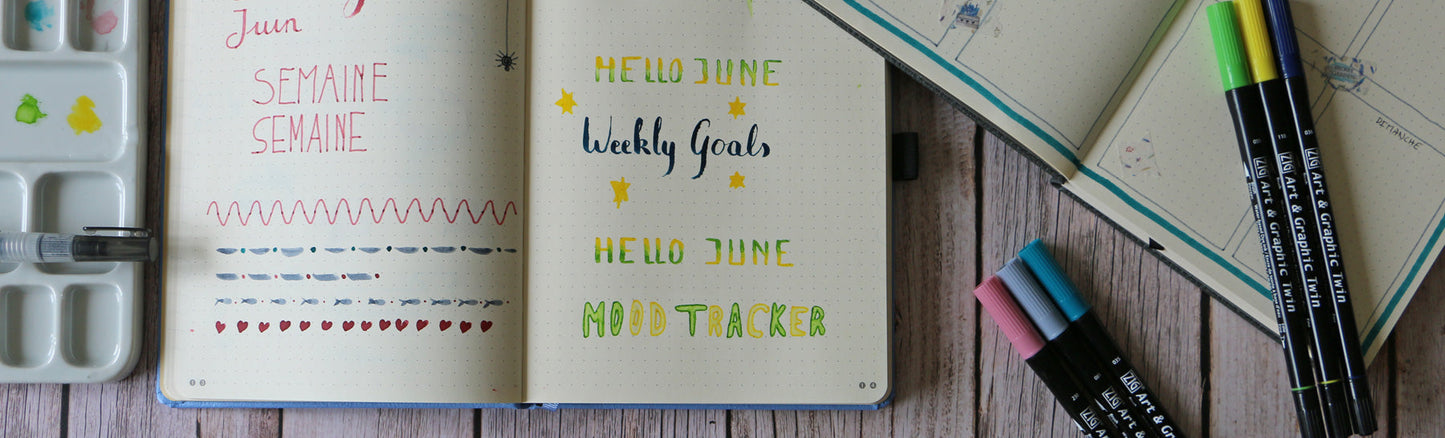 Juin
SEMAINE
SEMAINE
HELLO JUNE
Weekly Goals
HELLO JUNE
MOOD TRACKER
DIMANCHE
ZIG Art & Graphic Twin
ZIG Art & Graphic Twin
ZIG Art & Graphic Twin
ZIG Art & Gr
ZIG Art & Graphi
ZIG Art & Graphic